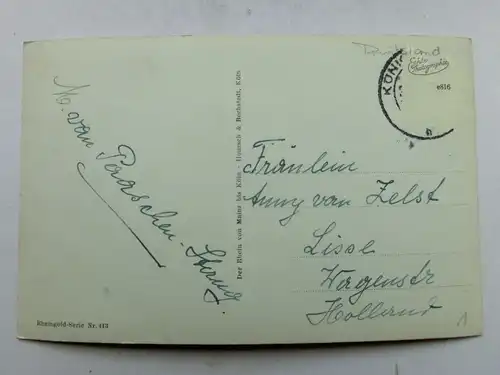 Deutschland
Echte
Photographie
e816
KÖNIG
h
M. van Paaschen-
Fräulein
Anny van Zelst
Lisse
Wagenstr
Holland
1
Der Rhein von Mainz bis Köln - Hoursch & Bechstedt, Köln
Rheingold-Serie Nr. 413